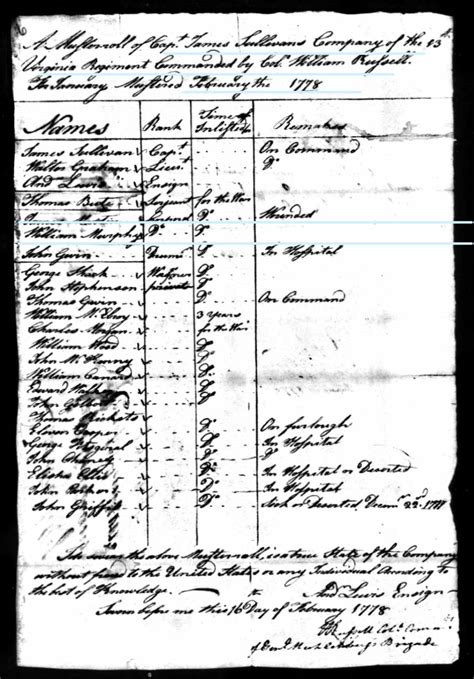 A Musterroll of Capt. James Sullevans Company of the 13th
Virginia Regiment Commanded by Col. William Russell
For January Mustered February the 1778
Names Rank Time of Inlistd Remarks
James Sullevan Capt. On Command
Walter Graham Lieut. Do
And Lewis Ensign
Thomas Serjeant for the War
Do Wounded
William Murphy Do Do
John Gwin Drumr Do In Hospital
George Do
John Stephenson private Do
Thomas Gwin Do On Command
William McElroy 3 Years
Charles Morgan for the War
William Wood Do
John McKenny Do
William Do
Edward Do
John Do
Thomas Rickets Do
Cooper Do On furlough
George Do In Hospital
John Do Do
Elisha Ellis Do In Hospital or Deserted
John Do In Hospital
John Griffith Do Sick or Deserted Decemr 22nd 1777
I do swear the above Musterroll, is a true State of the Company
without fraud to the United States or any Individual According to
the best of Knowledge. And Lewis Ensign
Sworn before me this 16th Day of February 1778
Russell Colo
of Genl Brigade